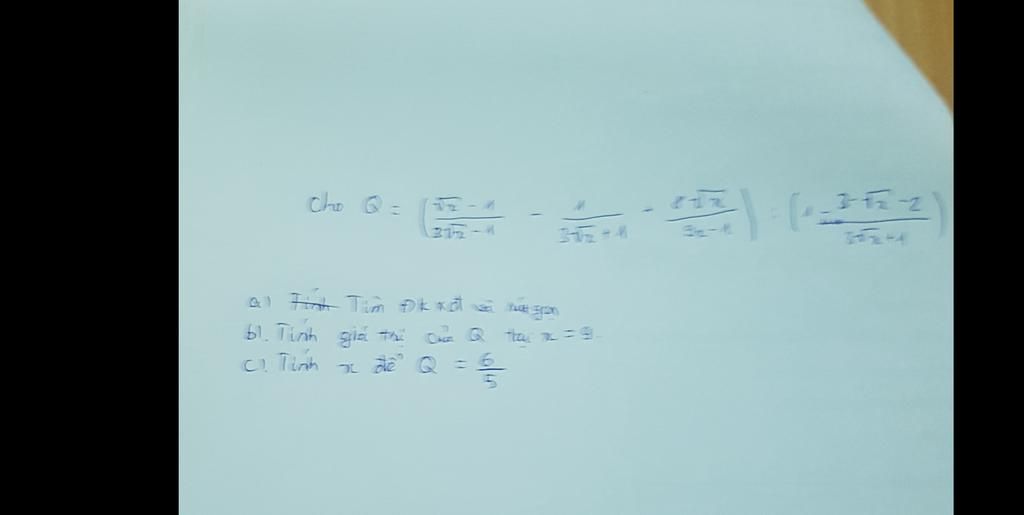 Cho Q = (√x - 1 / 3√x - 1 - 1 / 3√x + 1 - 8√x / 9x - 1) : (1 - 3√x - 2 / 3√x + 1)
a) Tính Tìm Đk xđ và rút gọn
b). Tính giá trị của Q tại x = 9.
c). Tính x để Q = 6 / 5